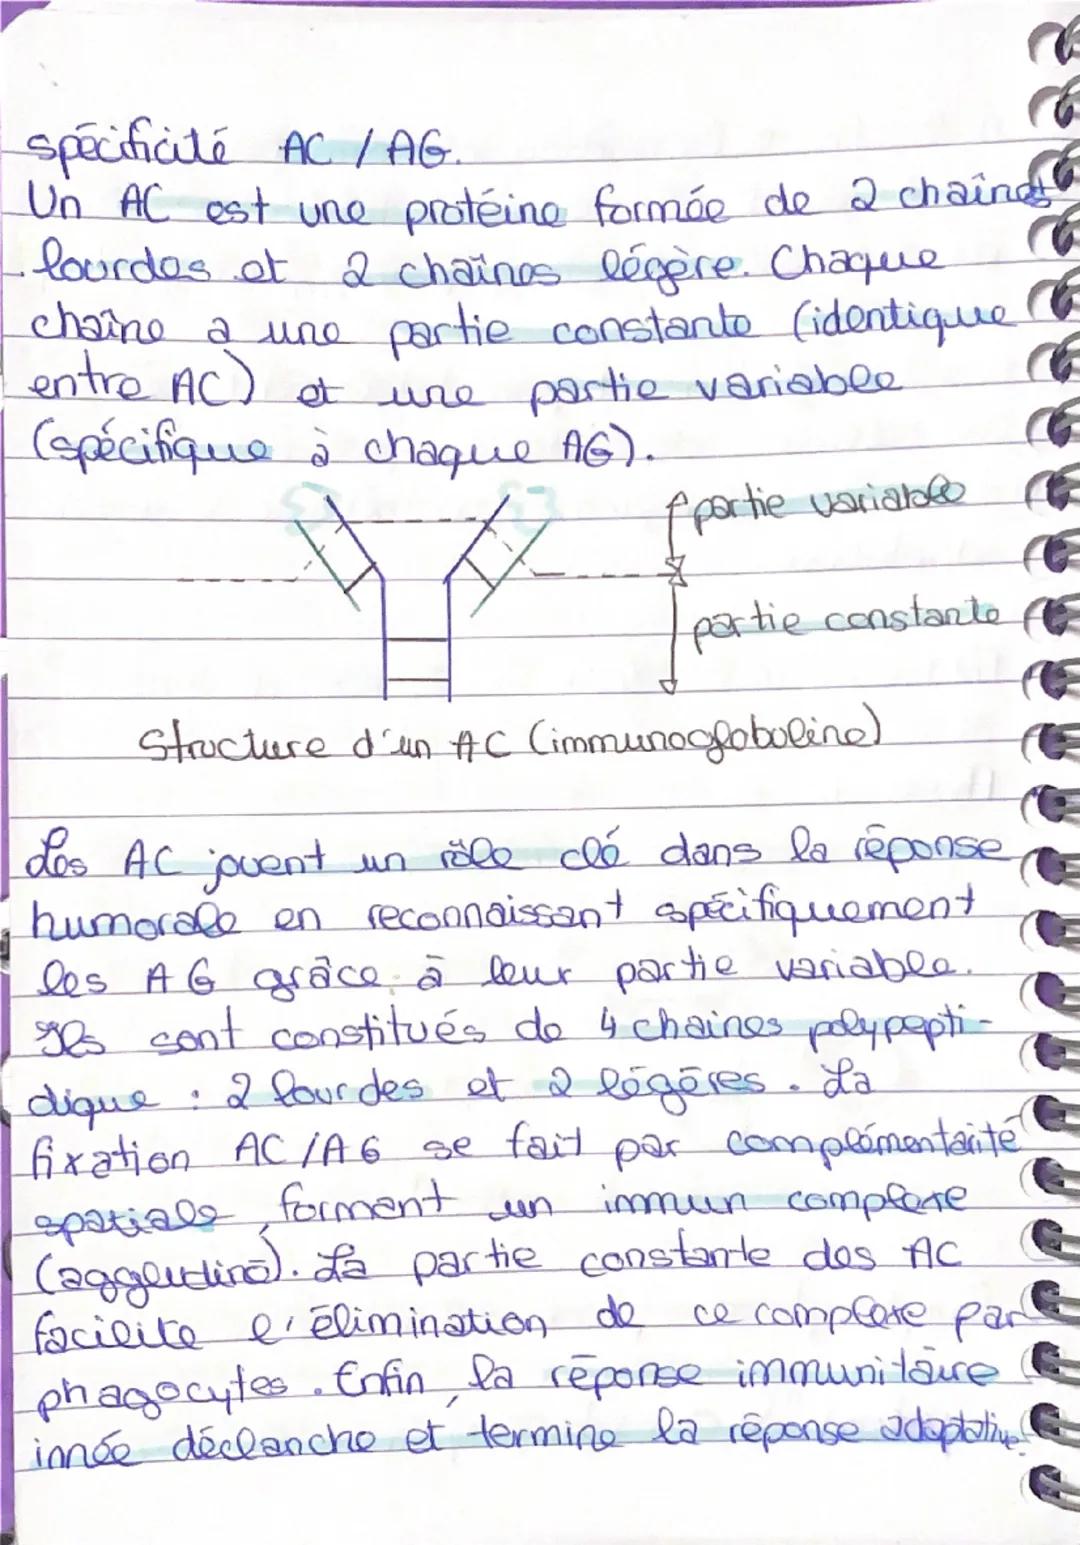 spécificité AC / AG.
Un AC est une protéine formée de 2 chaînes
lourdes et 2 chaînes légère. Chaque
chaîne a une partie constante (identique
entre AC) et une partie variable
(spécifique à chaque AG).
partie variable
partie constante
Structure d'un AC (immunogloboline)
Les AC jouent un rôle clé dans la réponse
humorale en reconnaissant spécifiquement
les AG grâce à leur partie variable.
Ils sont constitués de 4 chaines polypepti-
dique : 2 lourdes et 2 légères. La
fixation AC/AG se fait par complémentarité
spatiale, forment un immun complexe
(agglutiné). La partie constante des AC
facilite l'élimination de ce complexe par
phagocytes. Enfin, la réponse immunitaire
innée déclanche et termine la réponse adaptative